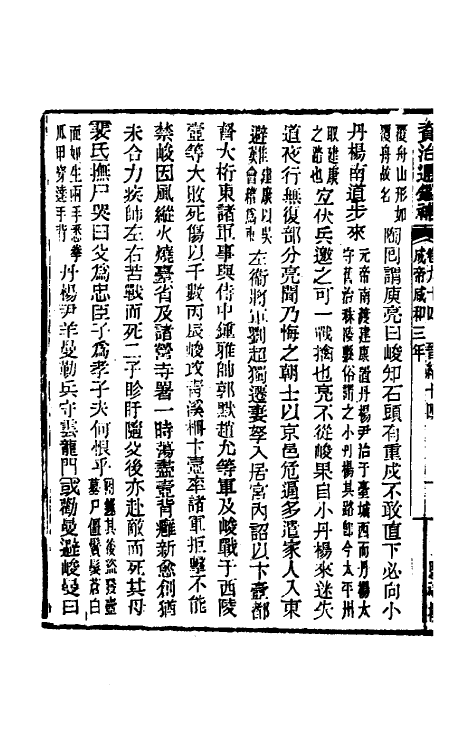 資治通鑑補 卷九十四 晉紀十六
成帝咸和三年
覆舟山形如覆舟故名 陶回謂庾亮曰峻知石頭有重戍不敢直下必向小
丹楊南道步來 元帝南渡建康置丹楊尹治于臺城西而丹楊太守舊治秣陵縣俗謂之小丹楊其路卽今太平州
取建康之路也 宜伏兵邀之可一戰擒也亮不從峻果自小丹楊來迷失
道夜行無復部分亮聞乃悔之朝士以京邑危逼多遣家人入東
避難 建康以吳會稽爲東 左衞將軍劉超獨遷妻孥入居宮內詔以卞壼都
督大桁東諸軍事與侍中鍾雅帥郭默趙允等軍及峻戰于西陵
壼等大敗死傷以千數丙辰峻攻靑溪柵卞壼率諸軍拒擊不能
禁峻因風縱火燒臺省及諸營寺署一時蕩盡壼背癰新愈創猶
未合力疾帥左右苦戰而死二子眕盱隨父後亦赴敵而死其母
裴氏撫尸哭曰父爲忠臣子爲孝子夫何恨乎 附錄其後盜發壼墓尸僵鬢髮蒼白
面如生兩手悉拳爪甲穿達手背 丹楊尹羊曼勒兵守雲龍門或勸曼避峻曼曰